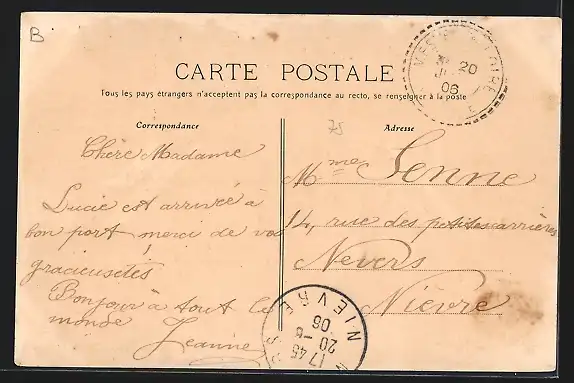 B
CARTE POSTALE
Tous les pays étrangers n'acceptent pas la correspondance au recto, se renseigner à la poste
Correspondance
75
Adresse
Chère Madame
Lucie est arrivée à
bon port, merci de vos
gracieusetés
Bonjour à tout le
monde
Jeanne
Mme Senne
14, rue des petites carrières
Nevers
Nièvre
20
06
LOIRE
NIEVRE
17 45
20 - 6
06